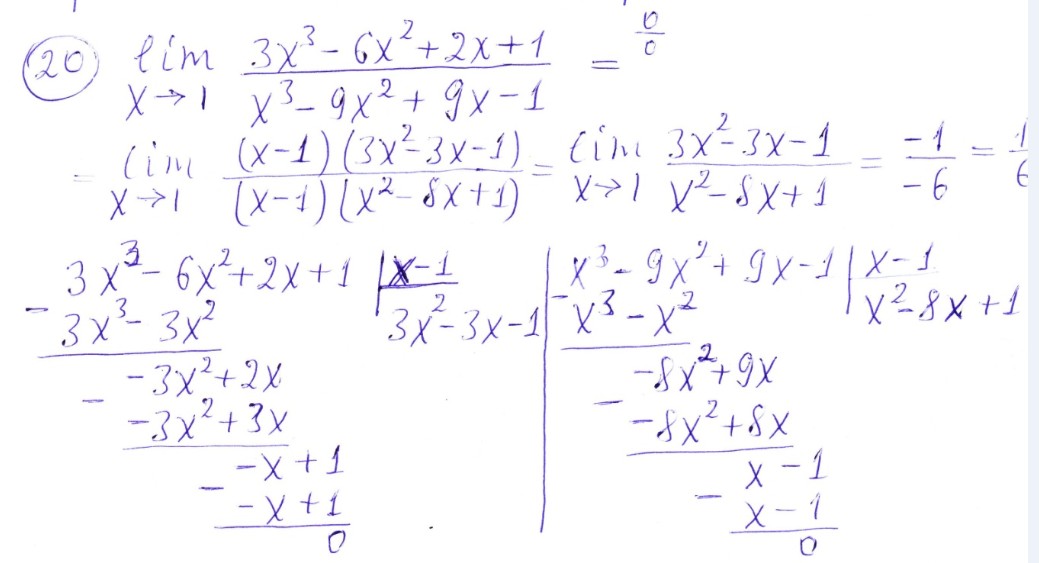 20 lim 3x³ - 6x² + 2x + 1 / x³ - 9x² + 9x - 1 = 0/0
x→1
= lim (x-1)(3x²-3x-1) / (x-1)(x²-8x+1) = lim 3x²-3x-1 / x²-8x+1 = -1/-6 = 1/6
x→1 x→1
3x³ - 6x² + 2x + 1 | x-1
- 3x³ - 3x² 3x²-3x-1
-3x² + 2x
- -3x² + 3x
-x + 1
- -x + 1
0
x³ - 9x² + 9x - 1 | x-1
- x³ - x² x²-8x+1
-8x² + 9x
- -8x² + 8x
x - 1
- x - 1
0